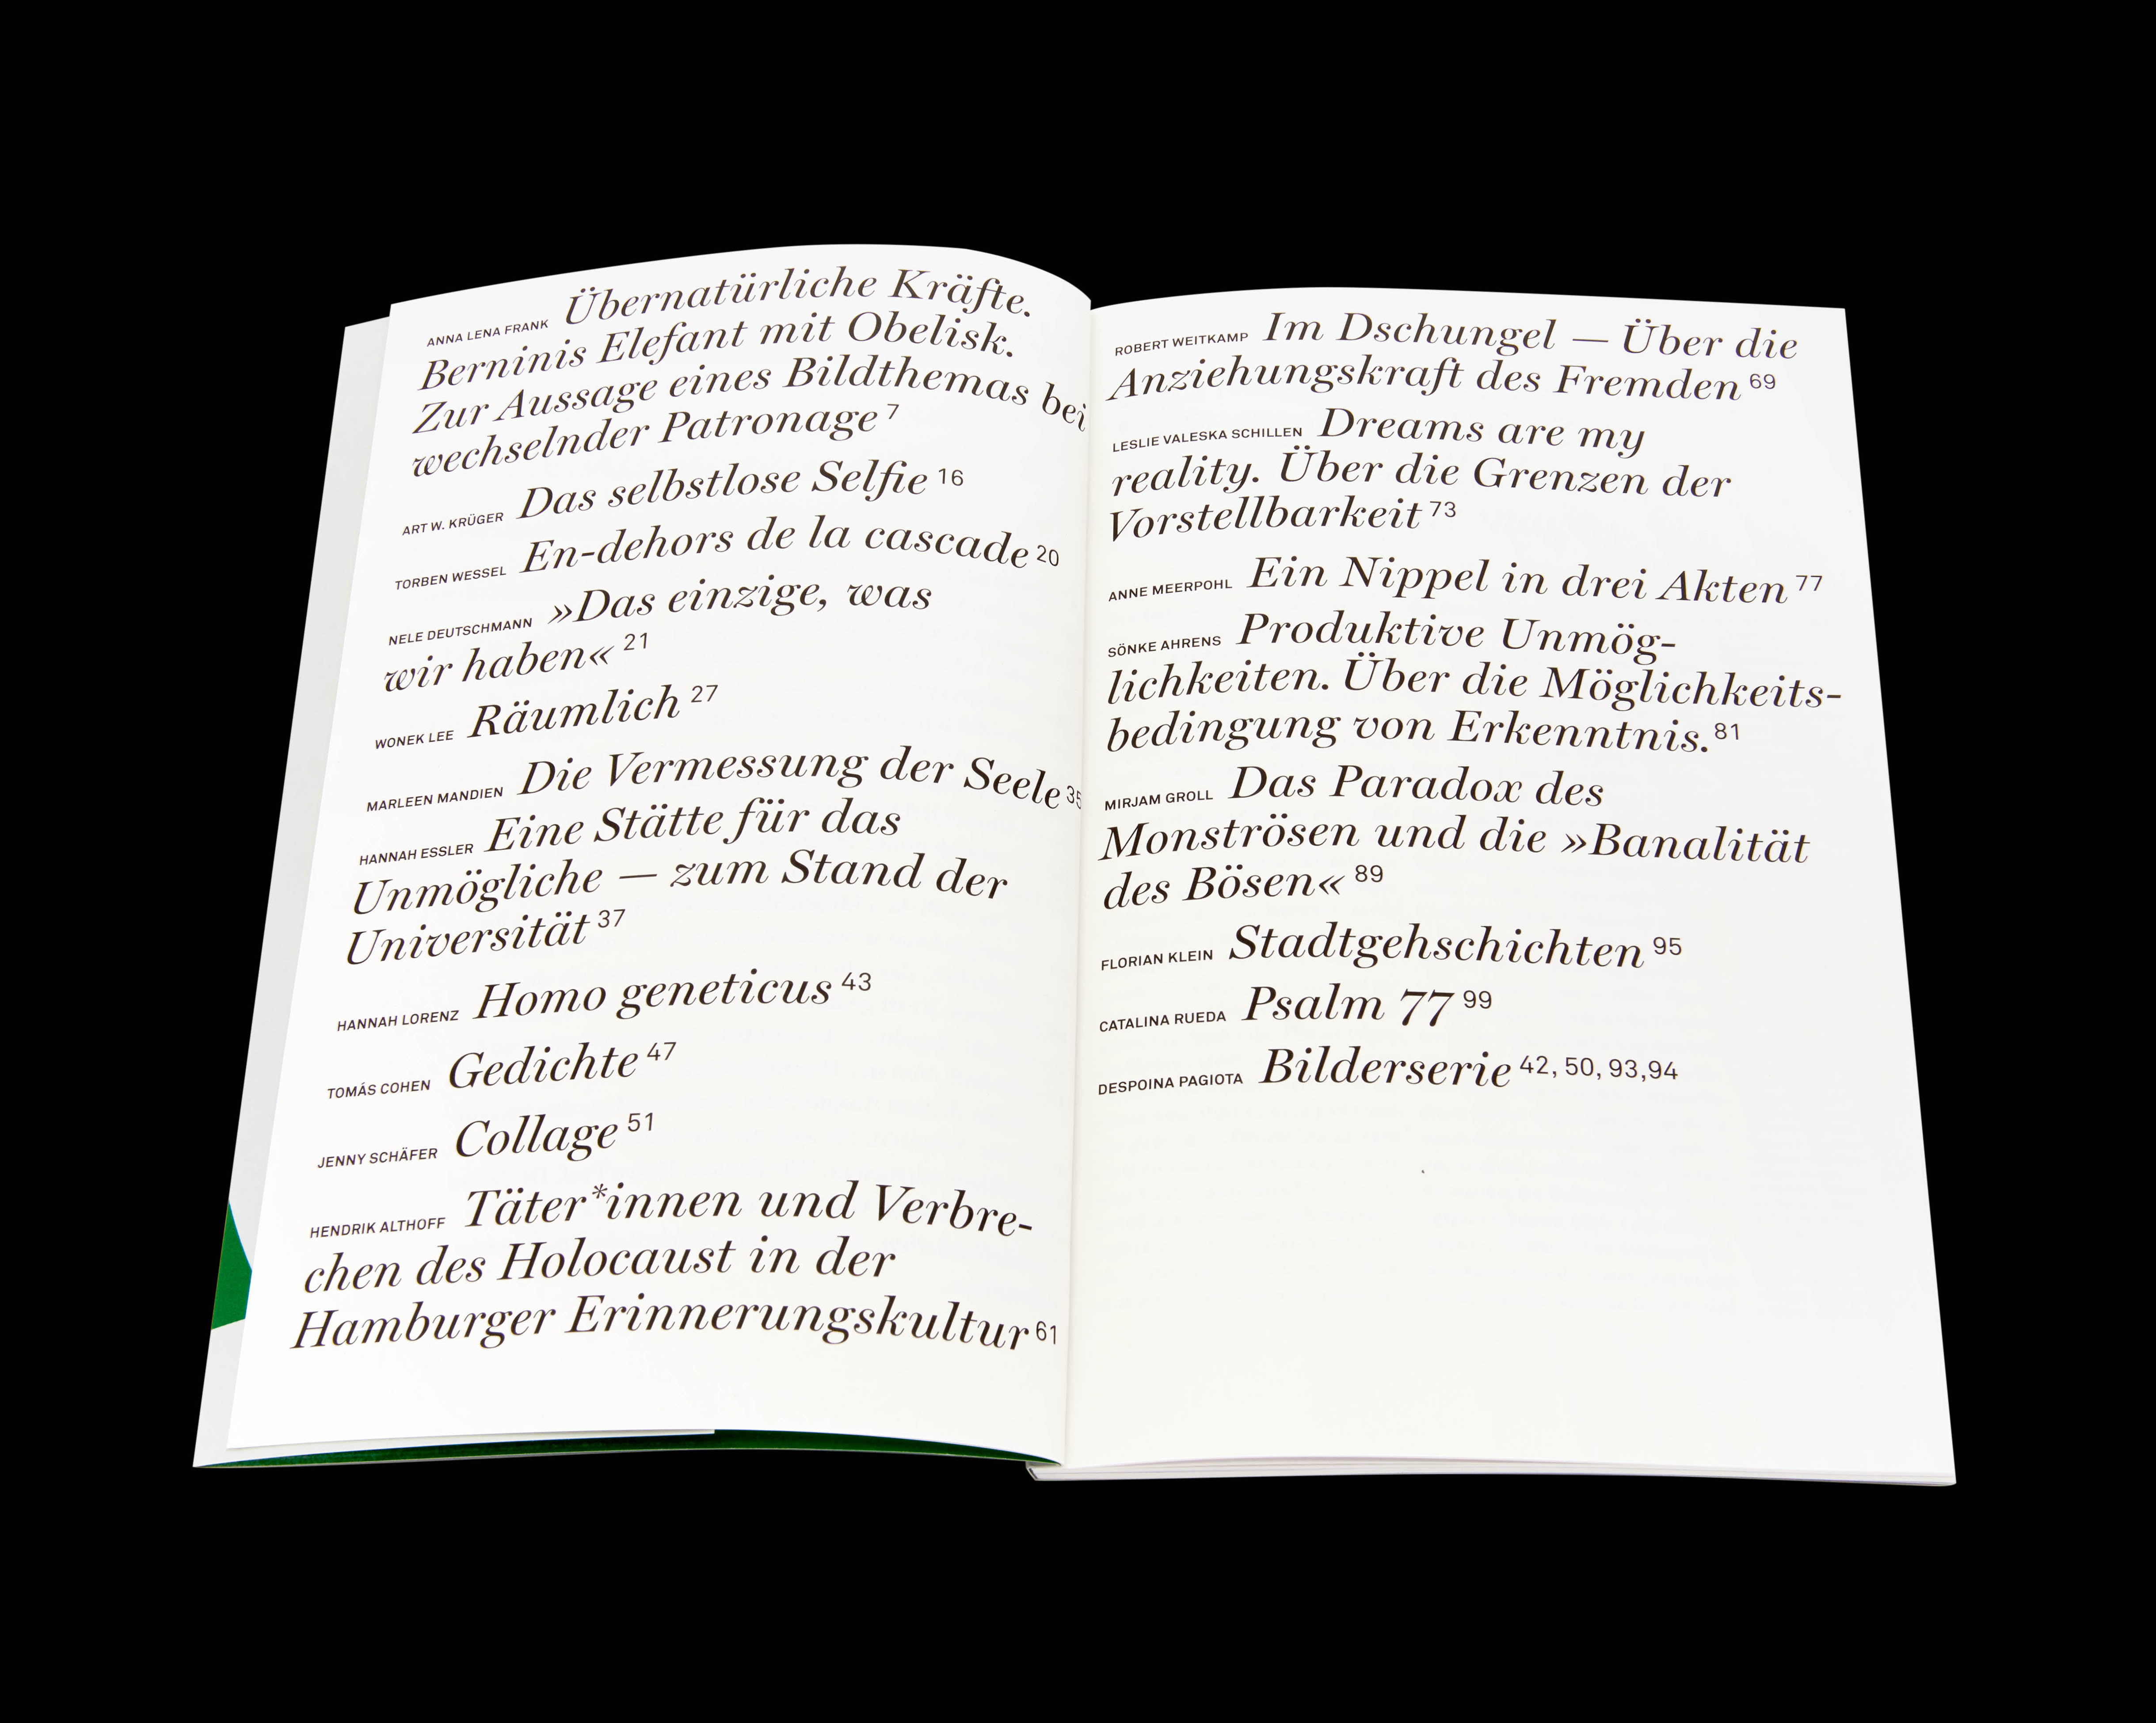 ANNA LENA FRANK Übernatürliche Kräfte.
Berninis Elefant mit Obelisk.
Zur Aussage eines Bildthemas bei
wechselnder Patronage 7
ART W. KRÜGER Das selbstlose Selfie 16
TORBEN WESSEL En-dehors de la cascade 20
NELE DEUTSCHMANN »Das einzige, was
wir haben« 21
WONEK LEE Räumlich 27
MARLEEN MANDIEN Die Vermessung der Seele 35
HANNAH ESSLER Eine Stätte für das
Unmögliche — zum Stand der
Universität 37
HANNAH LORENZ Homo geneticus 43
TOMÁS COHEN Gedichte 47
JENNY SCHÄFER Collage 51
HENDRIK ALTHOFF Täter*innen und Verbre-
chen des Holocaust in der
Hamburger Erinnerungskultur 61
ROBERT WEITKAMP Im Dschungel — Über die
Anziehungskraft des Fremden 69
LESLIE VALESKA SCHILLEN Dreams are my
reality. Über die Grenzen der
Vorstellbarkeit 73
ANNE MEERPOHL Ein Nippel in drei Akten 77
SÖNKE AHRENS Produktive Unmög-
lichkeiten. Über die Möglichkeits-
bedingung von Erkenntnis. 81
MIRJAM GROLL Das Paradox des
Monströsen und die »Banalität
des Bösen« 89
FLORIAN KLEIN Stadtgehschichten 95
CATALINA RUEDA Psalm 77 99
DESPOINA PAGIOTA Bilderserie 42, 50, 93,94